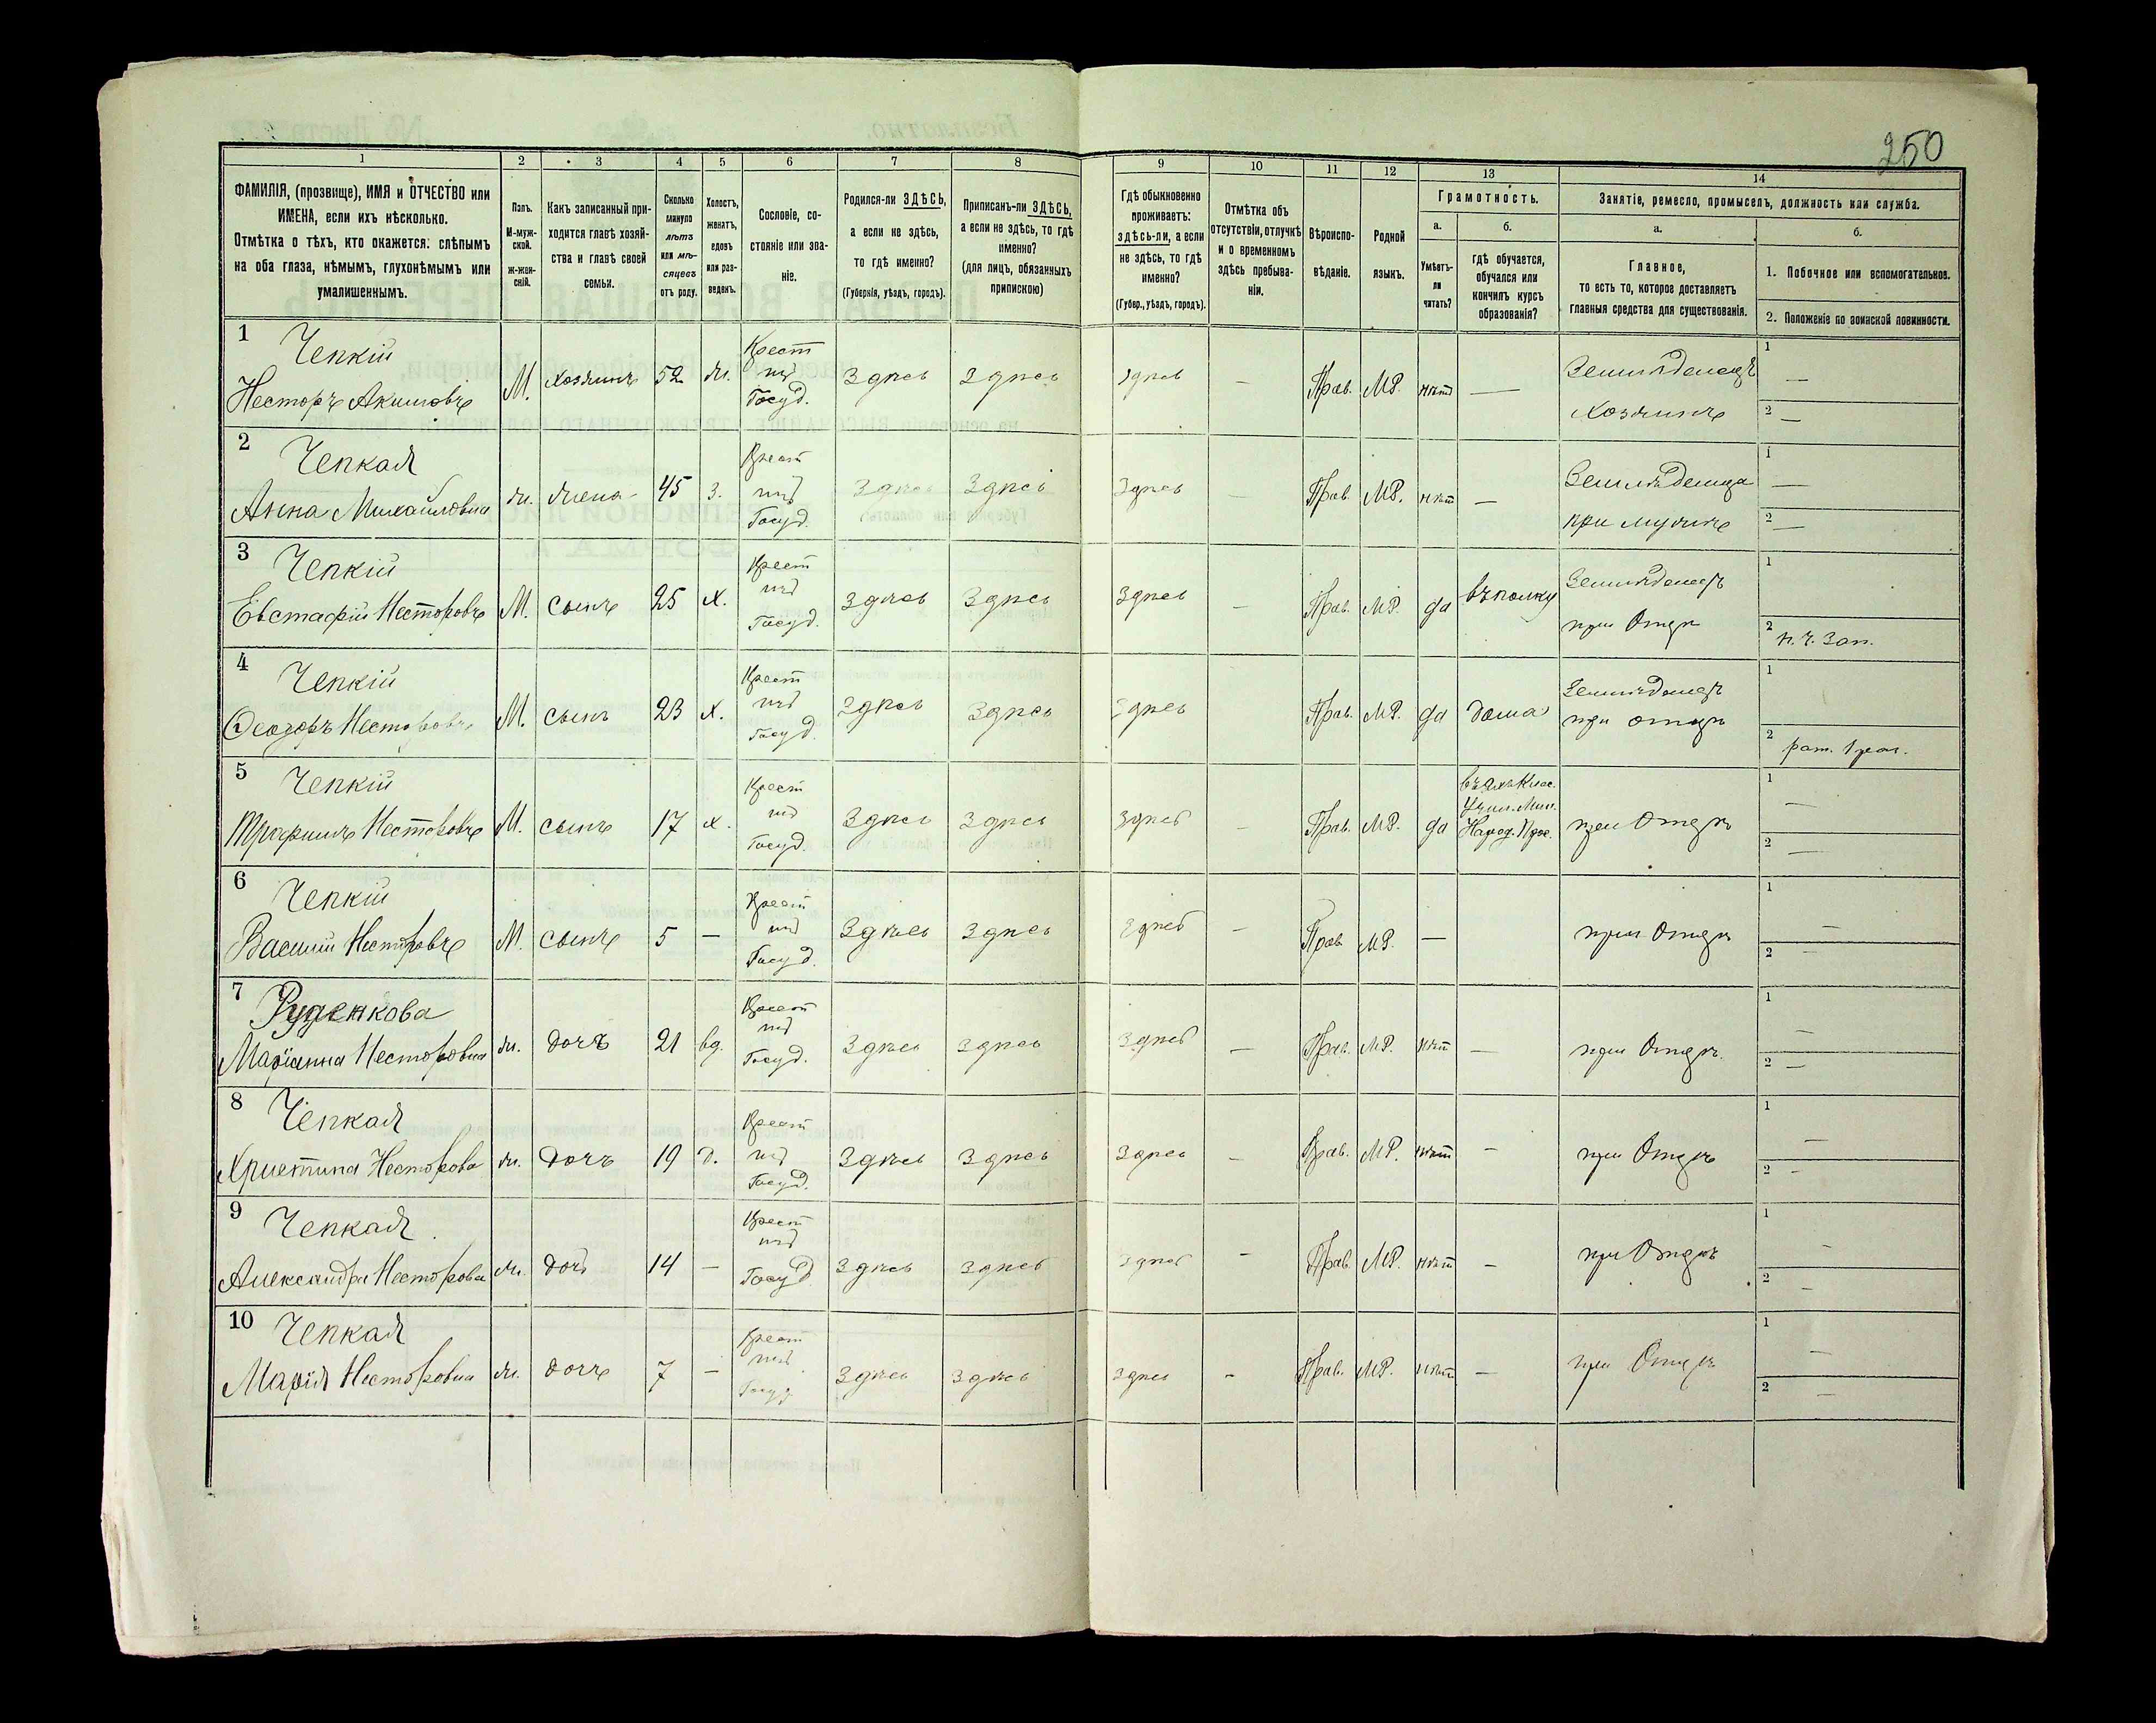 250
1 2 3 4 5 6 7 8 9 10 11 12 13 14
ФАМИЛІЯ, (прозвище), ИМЯ и ОТЧЕСТВО или
ИМЕНА, если ихъ нѣсколько.
Отмѣтка о тѣхъ, кто окажется: слѣпымъ
на оба глаза, нѣмымъ, глухонѣмымъ или
умалишеннымъ.
Полъ.
М-муж-
ской.
ж-жен-
скій.
Какъ записанный при-
ходится главѣ хозяй-
ства и главѣ своей
семьи.
Сколько
минуло
лѣтъ
или мѣ-
сяцевъ
отъ роду.
Холостъ,
женатъ,
вдовъ
или раз-
веденъ.
Сословіе, со-
стояніе или зва-
ніе.
Родился-ли ЗДѢСЬ,
а если не здѣсь,
то гдѣ именно?
(Губернія, уѣздъ, городъ).
Приписанъ-ли ЗДѢСЬ,
а если не здѣсь, то гдѣ
именно?
(для лицъ, обязанныхъ
припискою)
Гдѣ обыкновенно
проживаетъ:
здѣсь-ли, а если
не здѣсь, то гдѣ
именно?
(Губер., уѣздъ, городъ).
Отмѣтка объ
отсутствіи, отлучкѣ
и о временномъ
здѣсь пребыва-
ніи.
Вѣроиспо-
вѣданіе.
Родной
языкъ.
Грамотность.
а.
Умѣетъ-
ли
читать?
б.
гдѣ обучается,
обучался или
кончилъ курсъ
образованія?
Занятіе, ремесло, промыселъ, должность или служба.
а.
Главное,
то есть то, которое доставляетъ
главныя средства для существованія.
б.
1. Побочное или вспомогательное.
2. Положеніе по воинской повинности.
1 Чепкій
Несторъ Акимовъ М. хозяинъ 52 ж. Крест. изъ Госуд. Здѣсь Здѣсь Здѣсь — Прав. МР. нѣтъ — Земледѣлецъ Хозяинъ 1 — 2 —
2 Чепкая
Анна Михайловна ж. жена 45 з. Крест изъ Госуд. Здѣсь Здѣсь Здѣсь — Прав. МР. нѣтъ — при мужѣ 1 — 2 —
3 Чепкій
Евстафій Несторовъ М. сынъ 25 х. Крест изъ Госуд. Здѣсь Здѣсь Здѣсь — Прав. МР. да въ полку Земледѣлецъ при Отцѣ 1 2 н. ч. Зап.
4 Чепкій
Ѳеодоръ Несторовъ М. сынъ 23 х. Крест изъ Госуд. Здѣсь Здѣсь Здѣсь Прав. МР. да дома Земледѣлецъ при отцѣ 1 2 рат. 1 раз.
5 Чепкій
Трофимъ Несторовъ М. сынъ 17 х. Крест изъ Госуд. Здѣсь Здѣсь Здѣсь — Прав. МР. да Учил. Мин. Народ. Прос. при Отцѣ 1 — 2 —
6 Чепкій
Василій Несторовъ М. сынъ 5 — Крест изъ Госуд. Здѣсь Здѣсь Здѣсь — Прав МР. — при Отцѣ 1 — 2 —
7 Руденкова
Маріанна Несторовна ж. дочъ 21 вд. Крест изъ Госуд. Здѣсь Здѣсь Здѣсь — Прав. МР. нѣтъ — при Отцѣ. 1 — 2 —
8 Чепкая
Христина Несторова ж. дочъ 19 д. Крест изъ Госуд. Здѣсь Здѣсь Здѣсь — Прав. МР. нѣтъ — при Отцѣ 1 — 2 —
9 Чепкая
Александра Несторова ж. дочь 14 — Крест изъ Госуд. Здѣсь Здѣсь Здѣсь — Прав. МР. нѣтъ — при Отцѣ 1 — 2 —
10 Чепкая
Марія Несторовна ж. дочъ 7 — Крест изъ Госуд Здѣсь Здѣсь Здѣсь — Прав. МР. нѣтъ — при Отцѣ 1 — 2 —